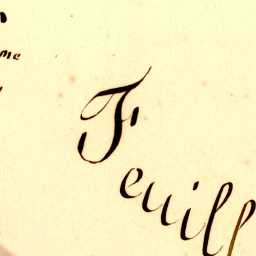 me
Feuill